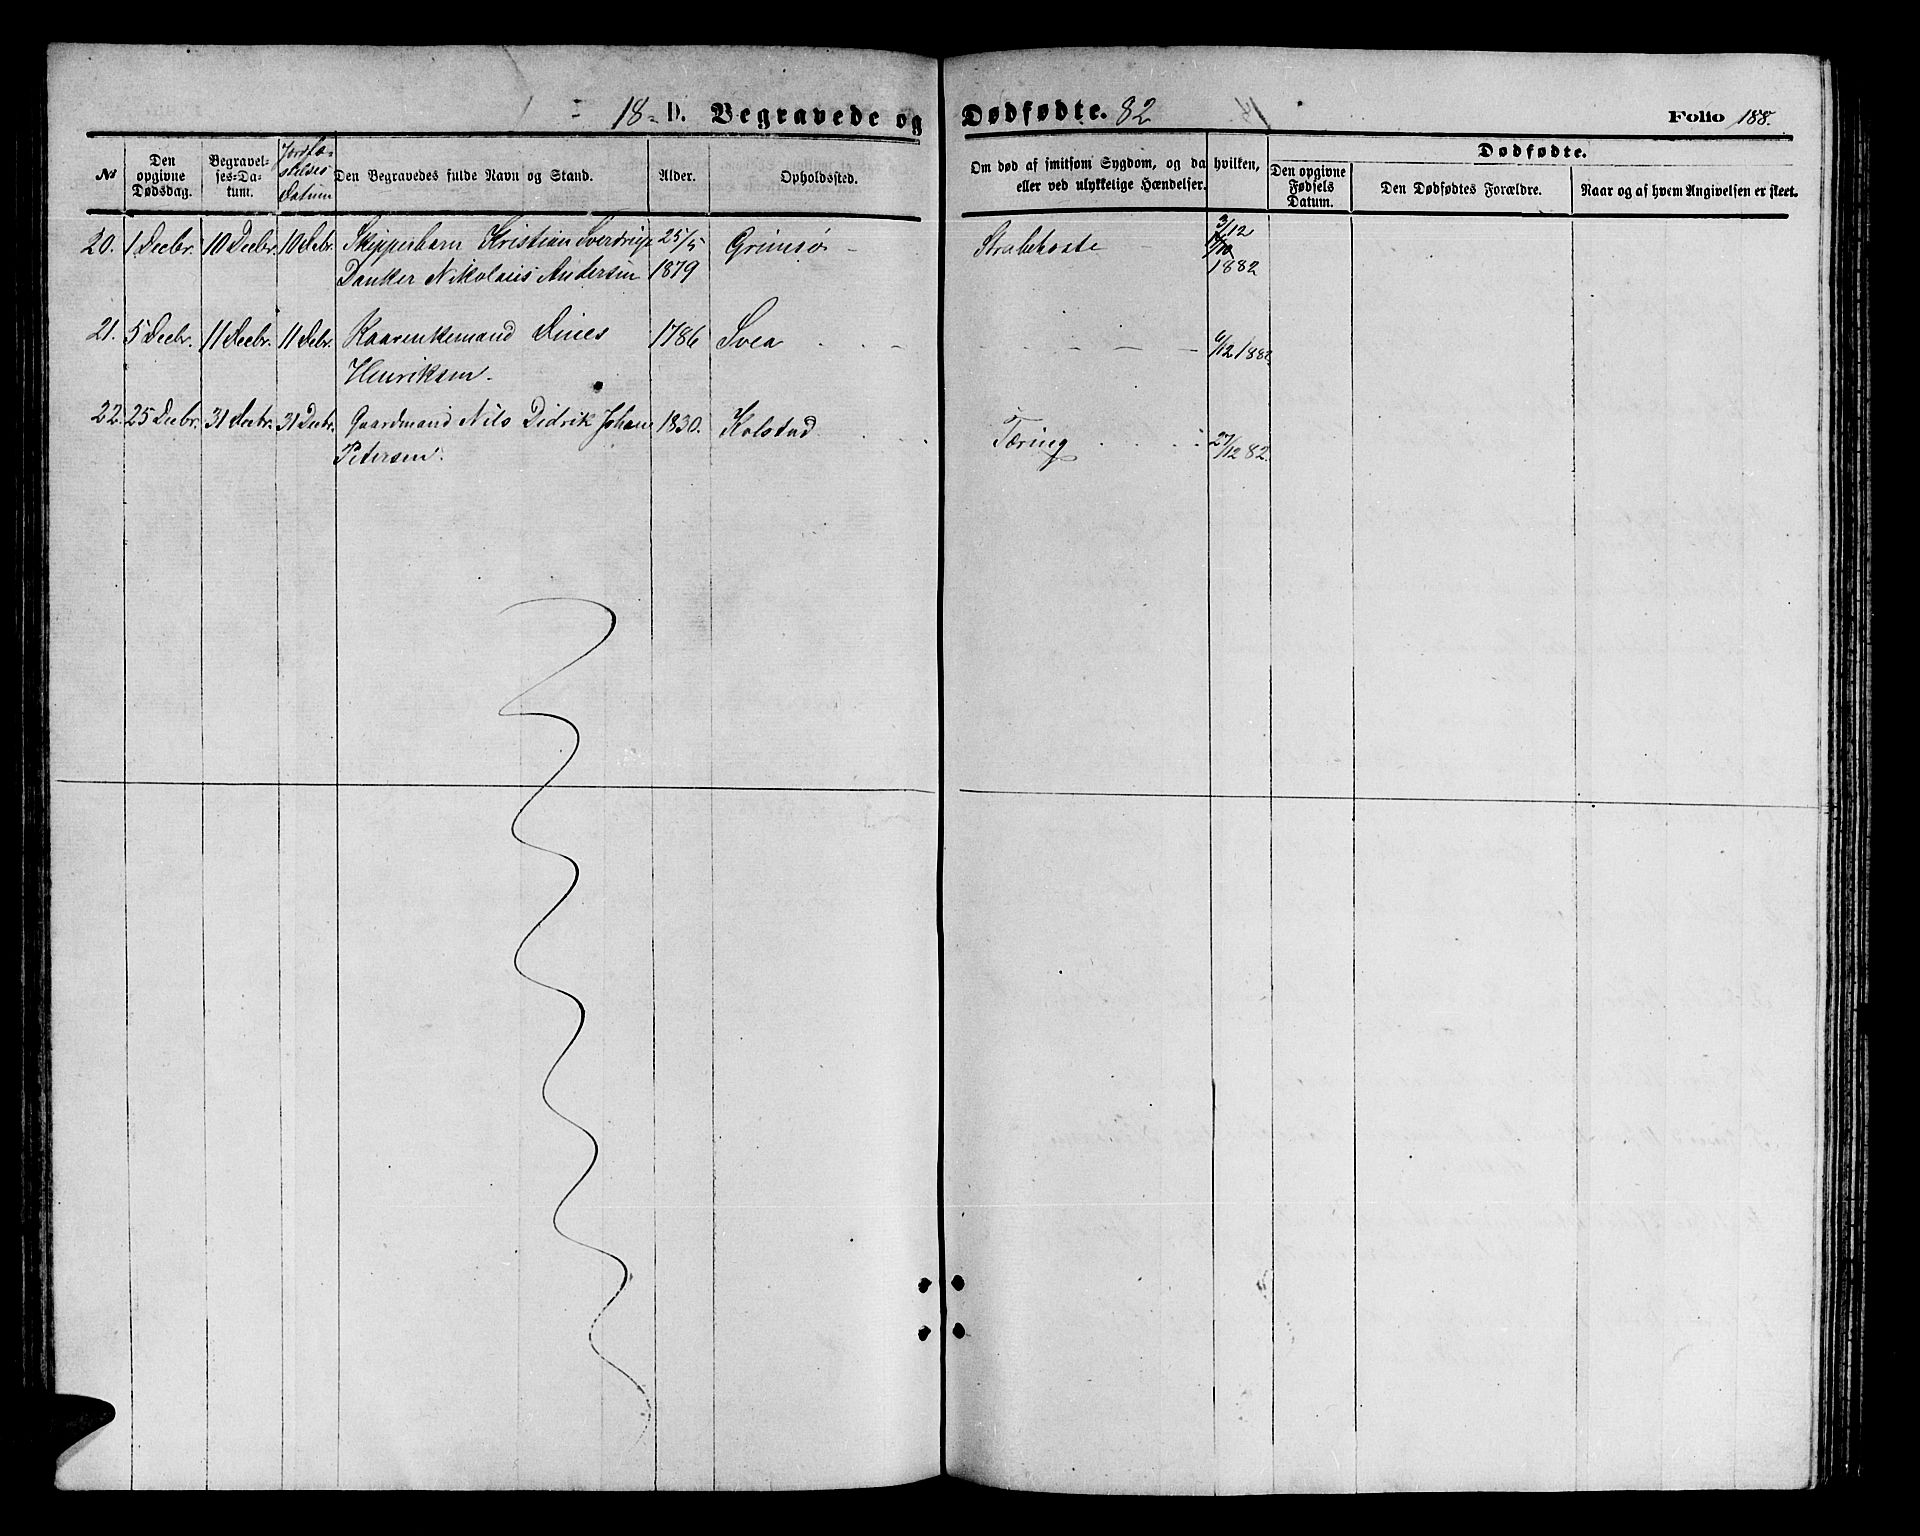 18 D. Begravede og Dødfødte. 82
Folio 188.
№
Den opgivne Dødsdag.
Begravel-ses-Da-tum.
Jordfæ-stelses Datum
Den Begravedes fulde Navn og Stand.
Alder.
Opholdssted.
Om død af smitsom Sygdom, og da hvilken,
eller ved ulykkelige Hændelser.
Dødfødte.
Den opgivne Fødsels Datum.
Den Dødfødtes Forældre.
Naar og af hvem Angivelsen er skeet.
20. 1 Decbr. 10 Decbr. 10 Debr. Skipperbarn Kristian Sverdrup 25/5 Grimsø Strubehoste 3/12
Danker Nikolaus Andersen 1879 1882
21. 5 Decbr. 11 Decbr. 11 Debr. Kaarenkemand Dines 1786 Svea 6/12 1882
Henriksen.
22. 25 Decbr. 31 Decbr. 31 Decbr. Gaardmand Nils Didrik Johan 1830. Kolstad Tæring 27/12 82.
Petersen.